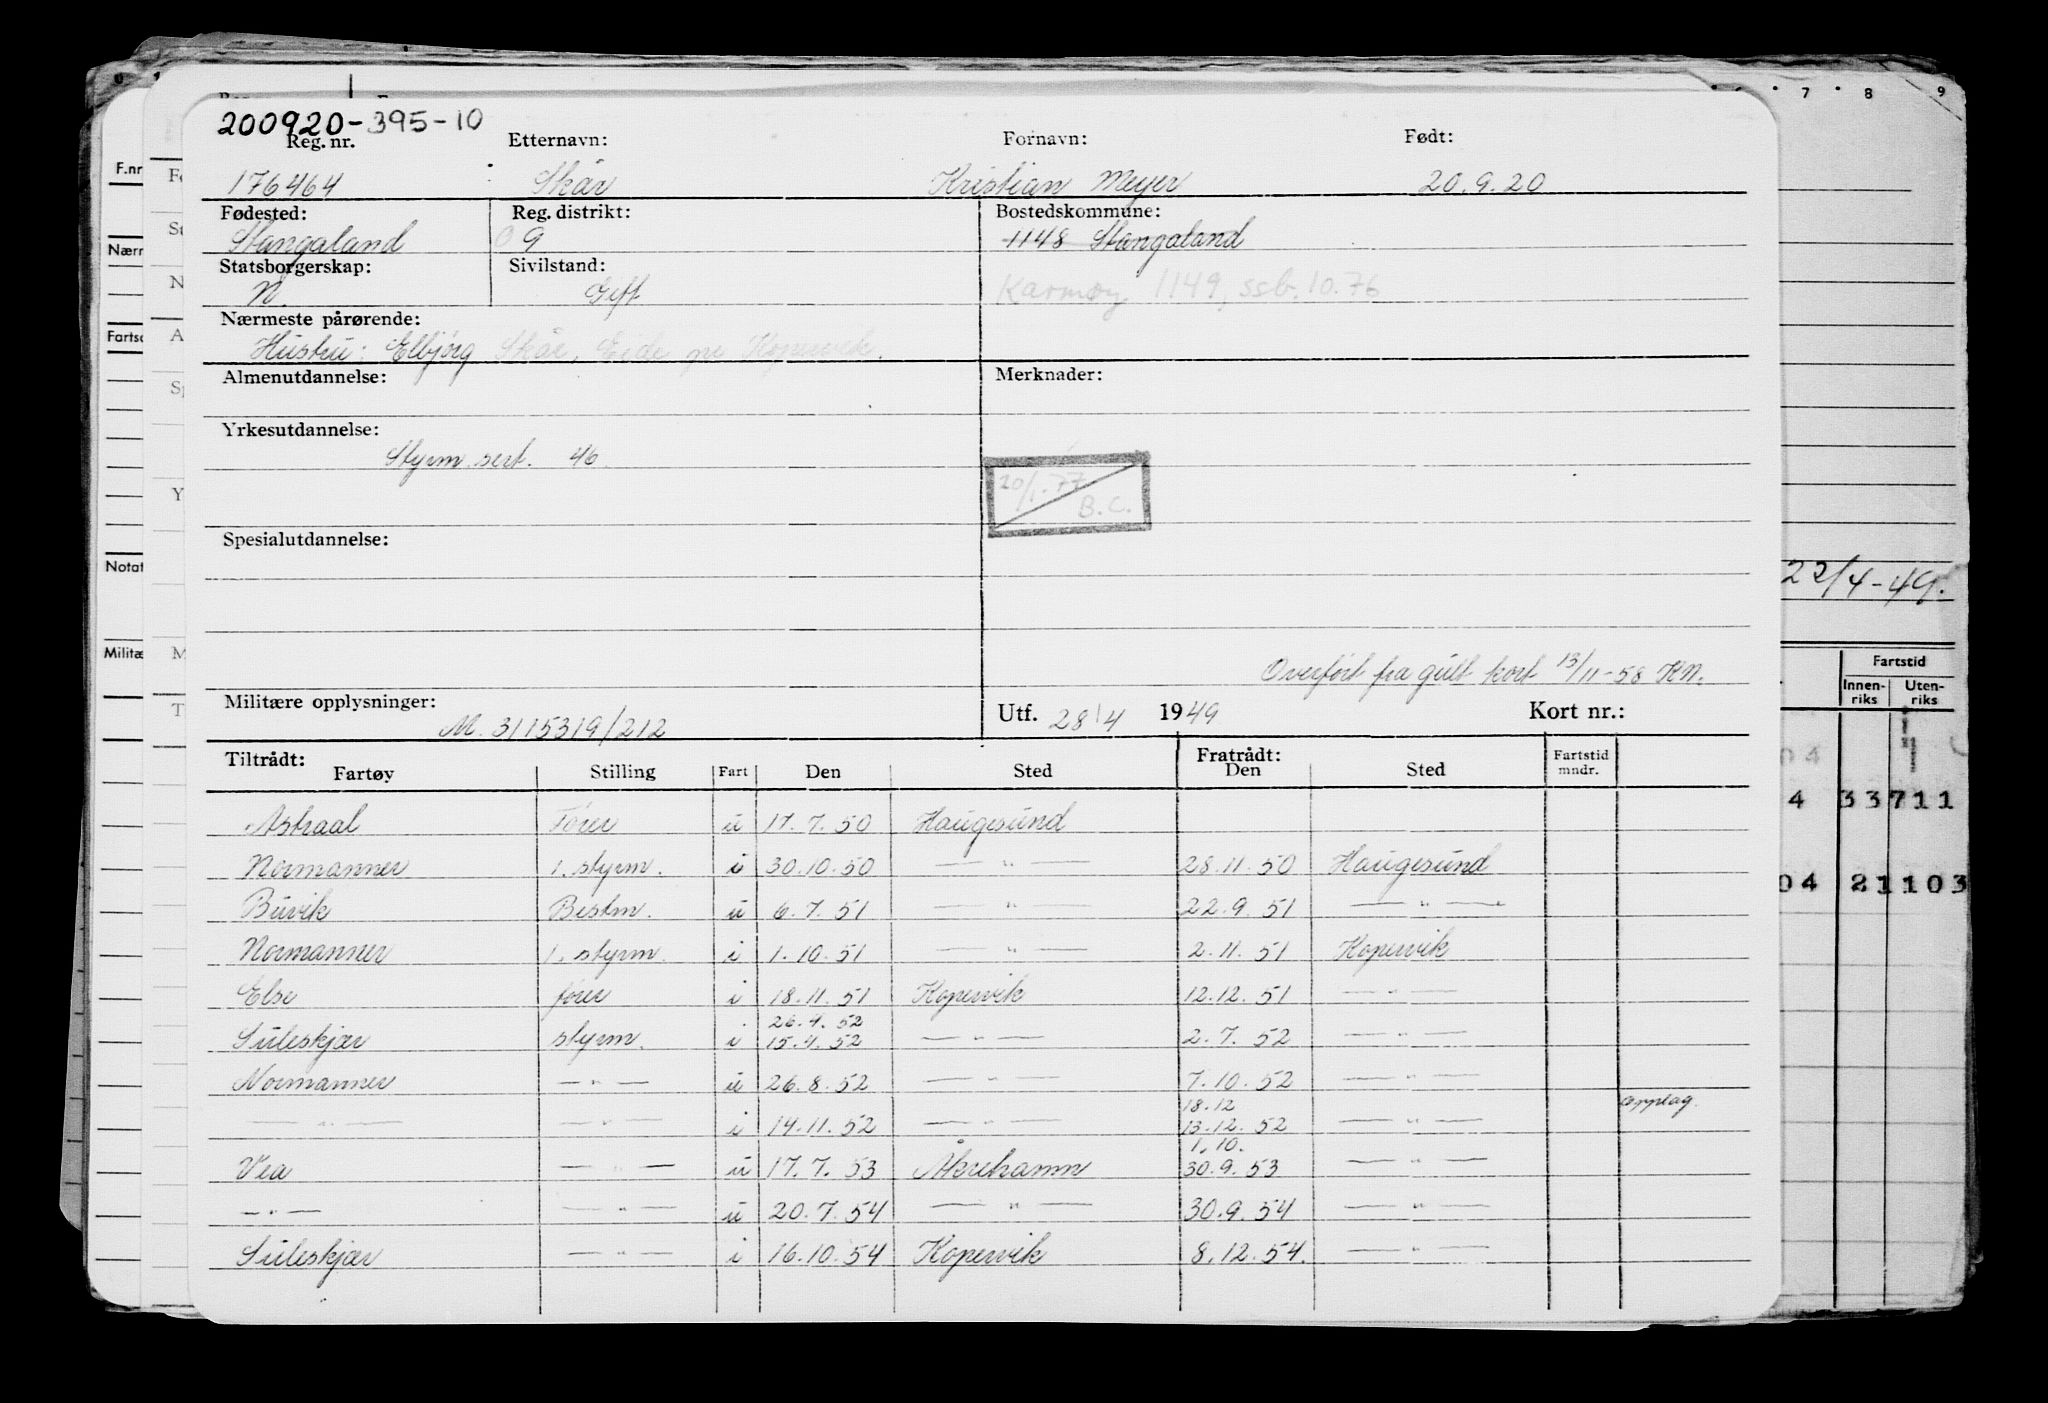 200920-395-10
Reg. nr. Etternavn: Fornavn: Født:
176464 Skår Kristian Meyer 20.9.20
Fødested: Reg. distrikt: Bostedskommune:
Stangaland 09 1148 Stangaland
Statsborgerskap: Sivilstand:
N. Gift Karmøy 1149, ssb. 10.76
Nærmeste pårørende:
Hustru: Elbjørg Skår, Eide pr Kopervik.
Almenutdannelse: Merknader:
Yrkesutdannelse:
Styrm. sert. 46.
20/1.77 B.C.
Spesialutdannelse:
Overført fra gult kort 13/11-58 KN.
Militære opplysninger: Utf. 28/4 1949 Kort nr.:
M. 3115319/212
Tiltrådt: Fratrådt:
Fartøy Stilling Fart Den Sted Den Sted Fartstid mndr.
Astraal Fører u 17.7.50 Haugesund
Normanner 1. styrm. i 30.10.50 — " — 28.11.50 Haugesund
Buvik Bestm. u 6.7.51 — " — 22.9.51 — " —
Normanner 1. styrm. i 1.10.51 — " — 2.11.51 Kopervik
Else fører i 18.11.51 Kopervik 12.12.51 — " —
26.4.52
Suleskjær styrm. i 15.4.52 — " — 2.7.52 — " —
Normanner — " — u 26.8.52 — " — 7.10.52 — " —
18.12 opplag.
— " — — " — i 14.11.52 — " — 13.12.52 — " —
1.10.
Vea — " — u 17.7.53 Åkrehamn 30.9.53 — " —
— " — — " — u 20.7.54 — " — 30.9.54 — " —
Suleskjær — " — i 16.10.54 Kopervik 8.12.54. — " —
F.nr
Nærm
Fartsc
Notat
Militæ
7 8 9
22/4-49.
Fartstid
Innen-riks Uten-riks
04
4 33 711
04 21 103